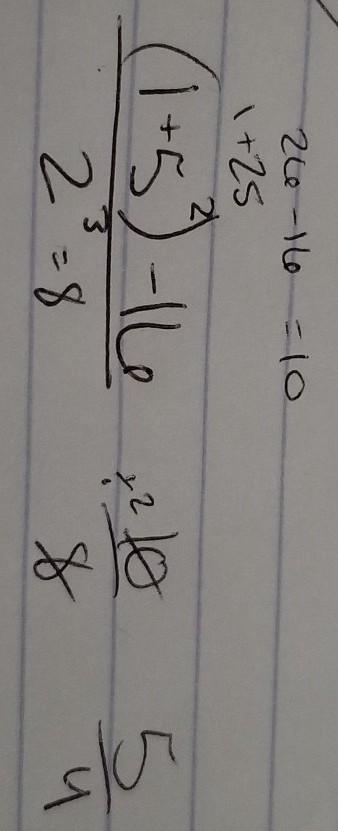 26-16 = 10
1+25
(1+5²) -16
2³ = 8
÷2 10
8
5
4